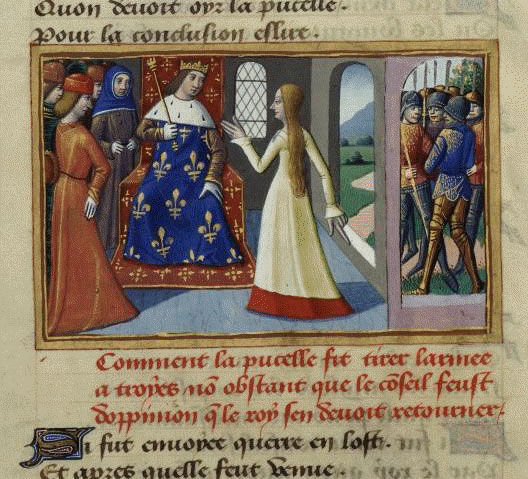 Quon deuoit oyr la pucelle.
Pour la conclusion eslire.
Comment la pucelle fit tirer larmee
a troyes nō obstant que le cōseil feust
doppinion q̄ le roy sen deuoit retourner.
Si fut enuoyee querre en lost.
Et apres quelle feut venue.